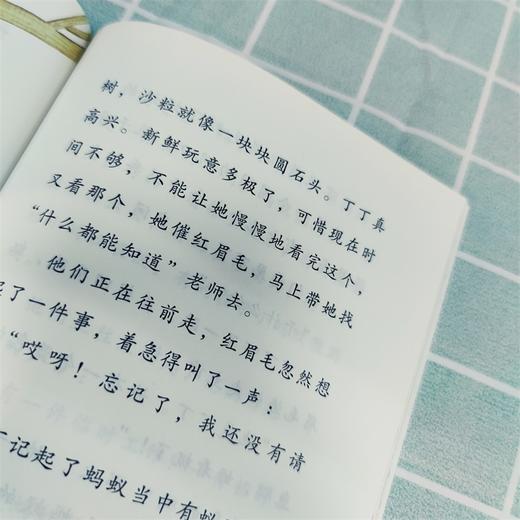 树，沙粒就像一块块圆石头。丁丁真
高兴。新鲜玩意多极了，可惜现在时
间不够，不能让她慢慢地看完这个，
又看那个，她催红眉毛，马上带她找
“什么都能知道”老师去。
他们正在往前走，红眉毛忽然想
了一件事，着急得叫了一声：
“哎呀！忘记了，我还没有请
记起了蚂蚁当中有蚁